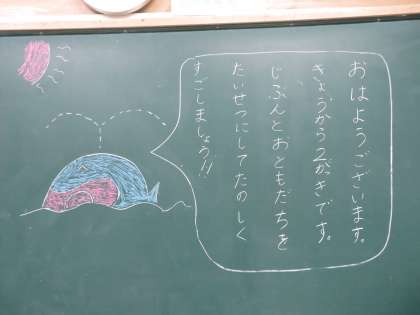 おはようございます。
きょうから2がっきです。
じぶんとおともだちを
たいせつにしてたのしく
すごしましょう!!